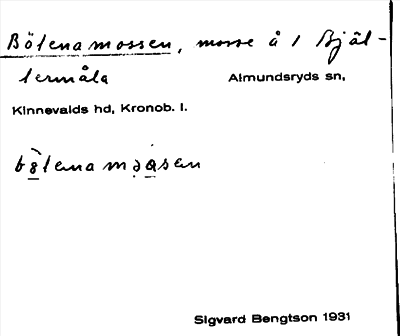 Bötenamossen, mosse å 1 Bjäl-
termåla Almundsryds sn,
Kinnevalds hd, Kronob. l.
Sigvard Bengtson 1931